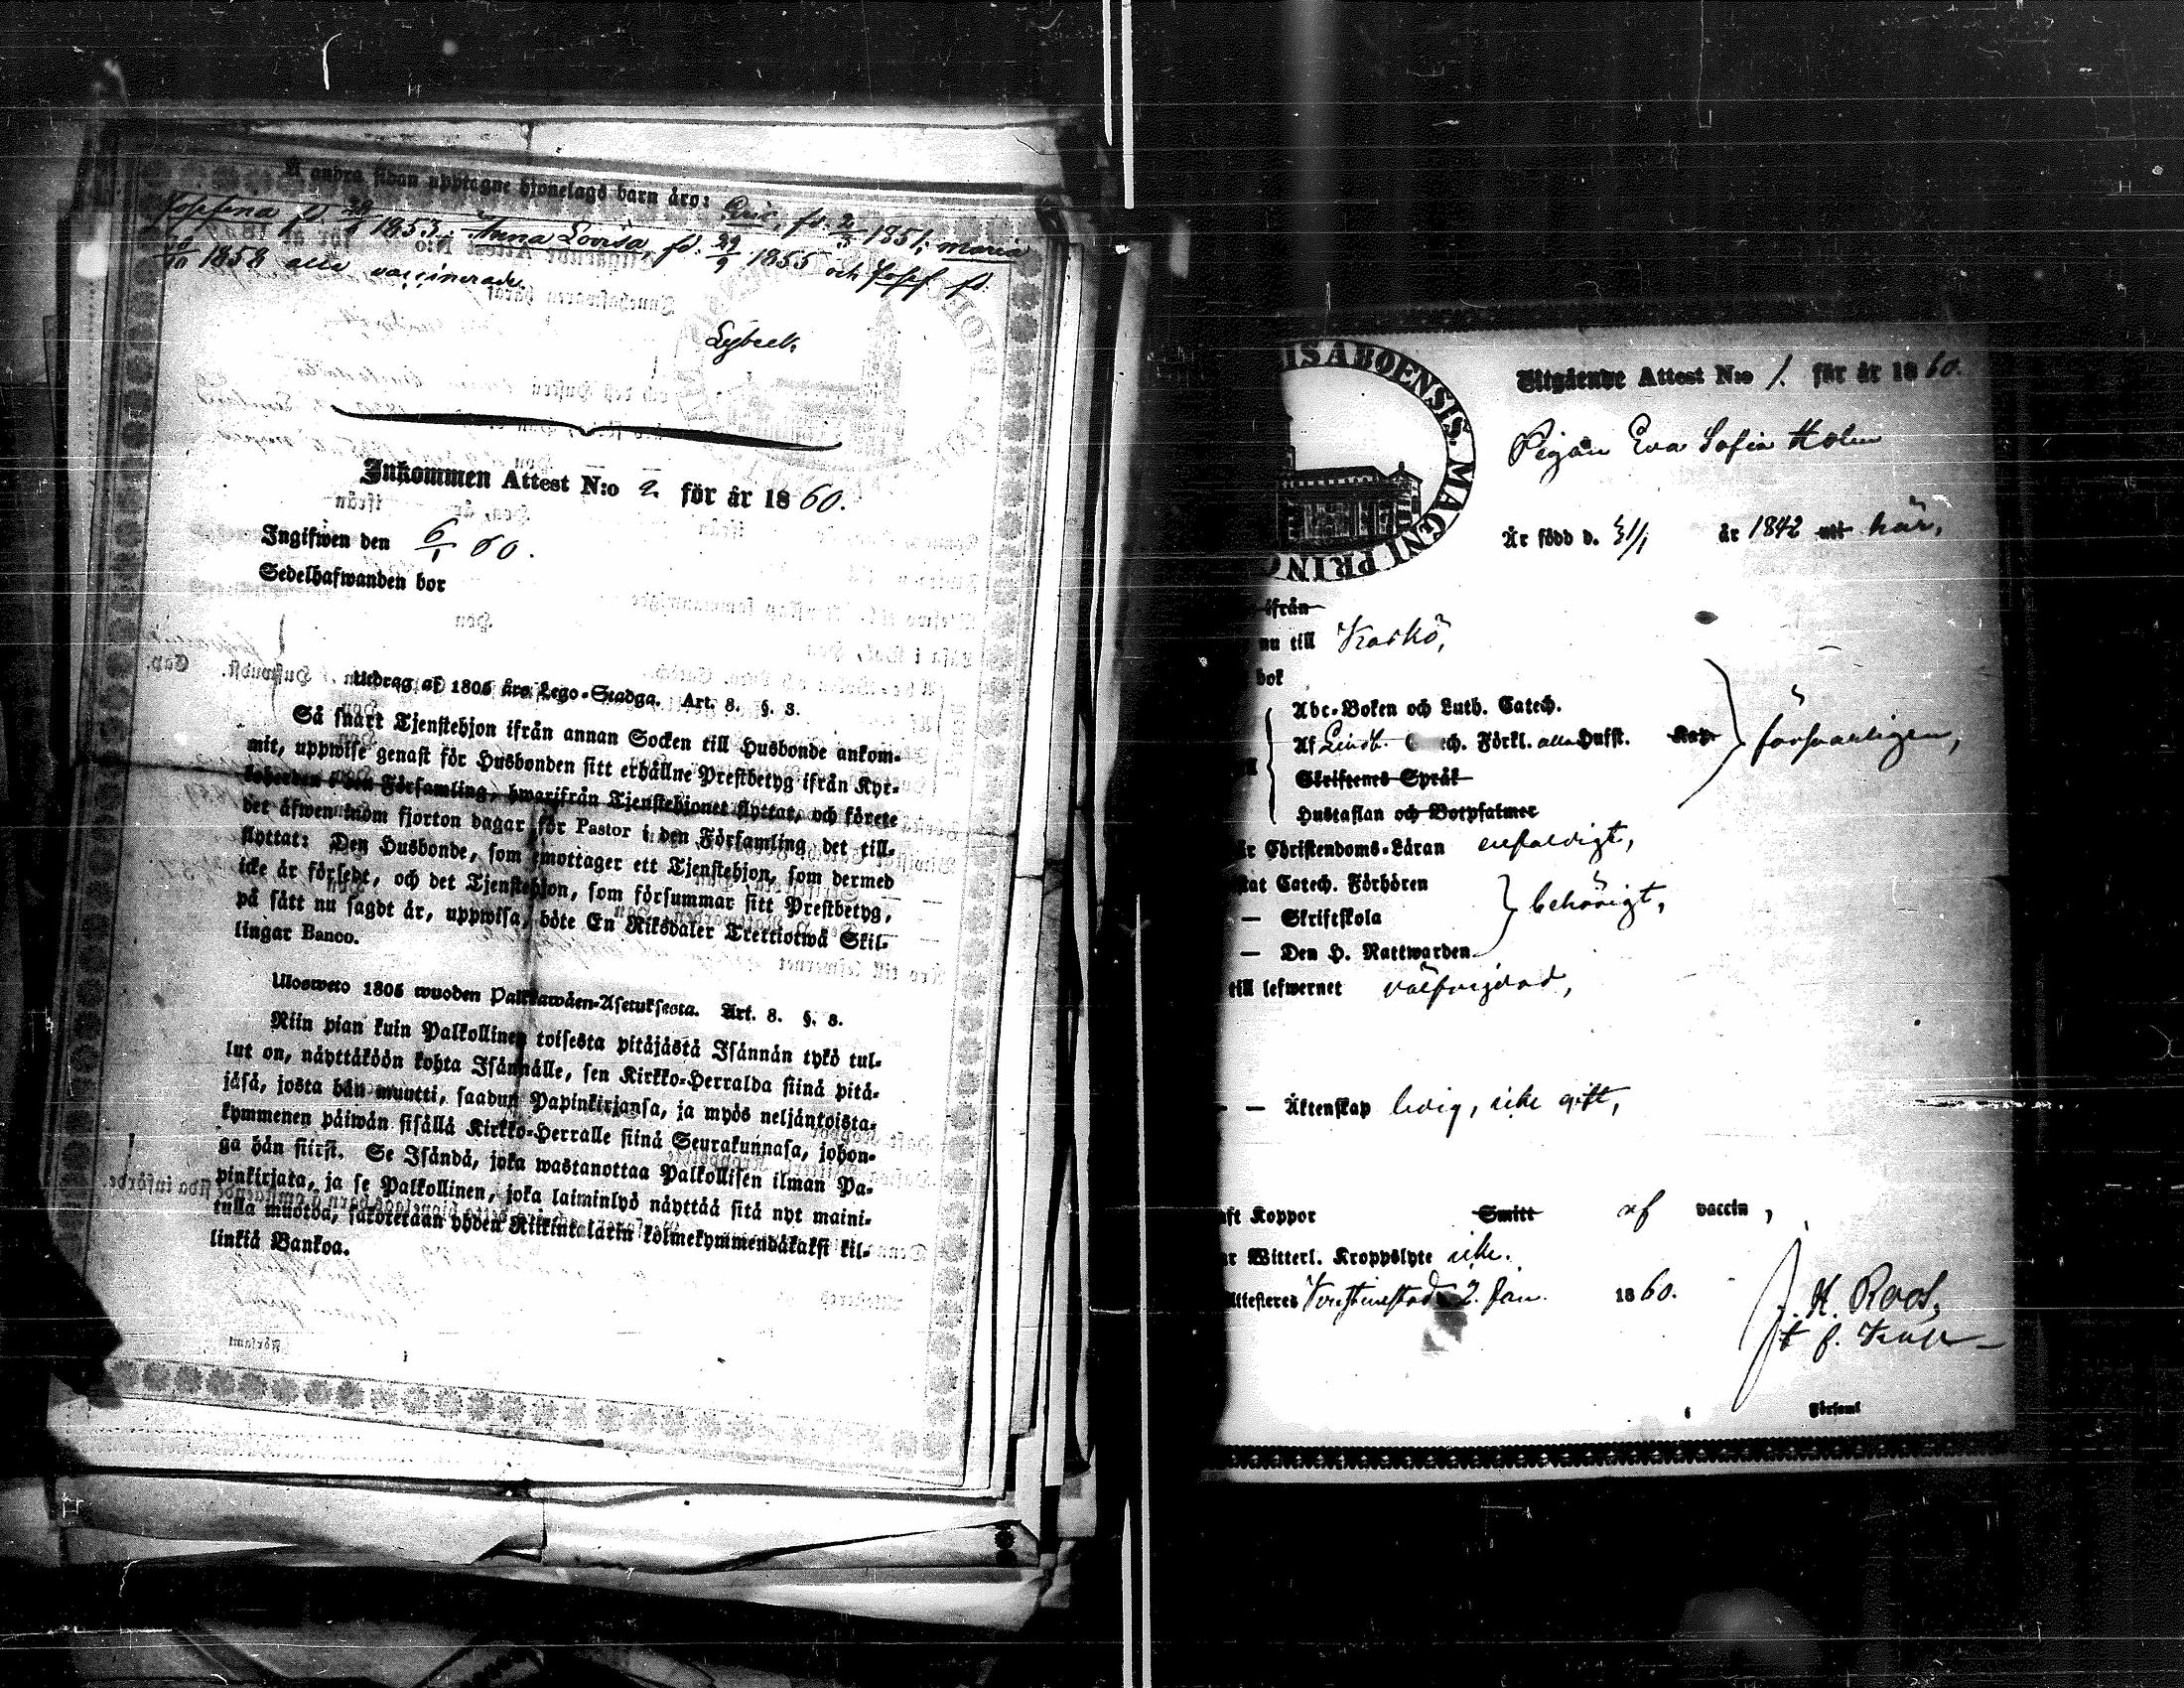 å andra sidan upptagne hjonelags barn äro: Eric, fd. 2/3 1851; Maria
Josefina fd. 1853. Anna Lovisa, fd: 29/9 1855 och Josef fd:
1858 alla vaccinerade.
Lybeck
Inkommen Attest N:o 2. för år 1860.
Ingifwen den 6/1 60.
Sedelhafwanden bor
Utdrag af 1805 års Lego-Stadga. Art. 8. §. 3.
Så snart Tjenstehjon ifrån annan Socken till Husbonde ankom-
mit, uppwise genast för Husbonden sitt erhållne Prestbetyg ifrån Kyr-
koherden i den Församling, hwarifrån Tjenstehjonet flyttat, och förete
det äfwen inom fjorton dagar för Pastor i den Församling det till-
flyttat: Den Husbonde, som emottager ett Tjenstehjon, som dermed
icke är försedt, och det Tjenstehjon, som försummar sitt Prestbetyg,
på sätt nu sagdt är, uppwisa, böte En Riksdaler Trettiotwå Skil-
lingar Banco.
Ulosweto 1805 wuoden Palkkawäen-Asetuksesta. Art. 8. §. 3.
Niin pian kuin Palkollinen toisesta pitäjästä Isännän tykö tul-
lut on, näyttäköön kohta Isännälle, sen Kirkko-Herralda siinä pitä-
jäsä, josta hän muutti, saadun Papinkirjansa, ja myös neljäntoista-
kymmenen päiwän sisällä Kirkko-Herralle siinä Seurakunnasa, johon-
ga hän siirsi. Se Isändä, joka wastanottaa Palkollisen ilman Pa-
pinkirjata, ja se Palkollinen, joka laiminlyö näyttää sitä nyt maini-
tulla muotoa, sakoretaan yhden Riikintalarin kolmekymmendäkaksi kil-
linkiä Bankoa.
ISABOENSIS. MAGNI PRINC
Utgående Attest N:o 1. för år 1860.
Pigan Eva Sofia Holm
Är född d. 31/1 år 1842 här,
ifrån
nu till Kaskö,
bok
Abc-Boken och Luth. Catech.
Af Lindb. Catech. Förkl. alla Hufst. Kap.
försvarligen,
Skriftenes Språk
Hustaflan och Botpsalmer
är Christendoms-Läran enfaldigt,
Catech. Förhören
— Skriftskola behörigt,
— Den H. Nattwarden
till lefwernet välfrejdad,
— — Äktenskap ledig, icke gift,
aft Koppor Smitt af vaccin,
ar Witterl. Kroppslyte icke.
Attesteres Kristinestad 2. Jan. 1860.
J. H. Roos,
Församl